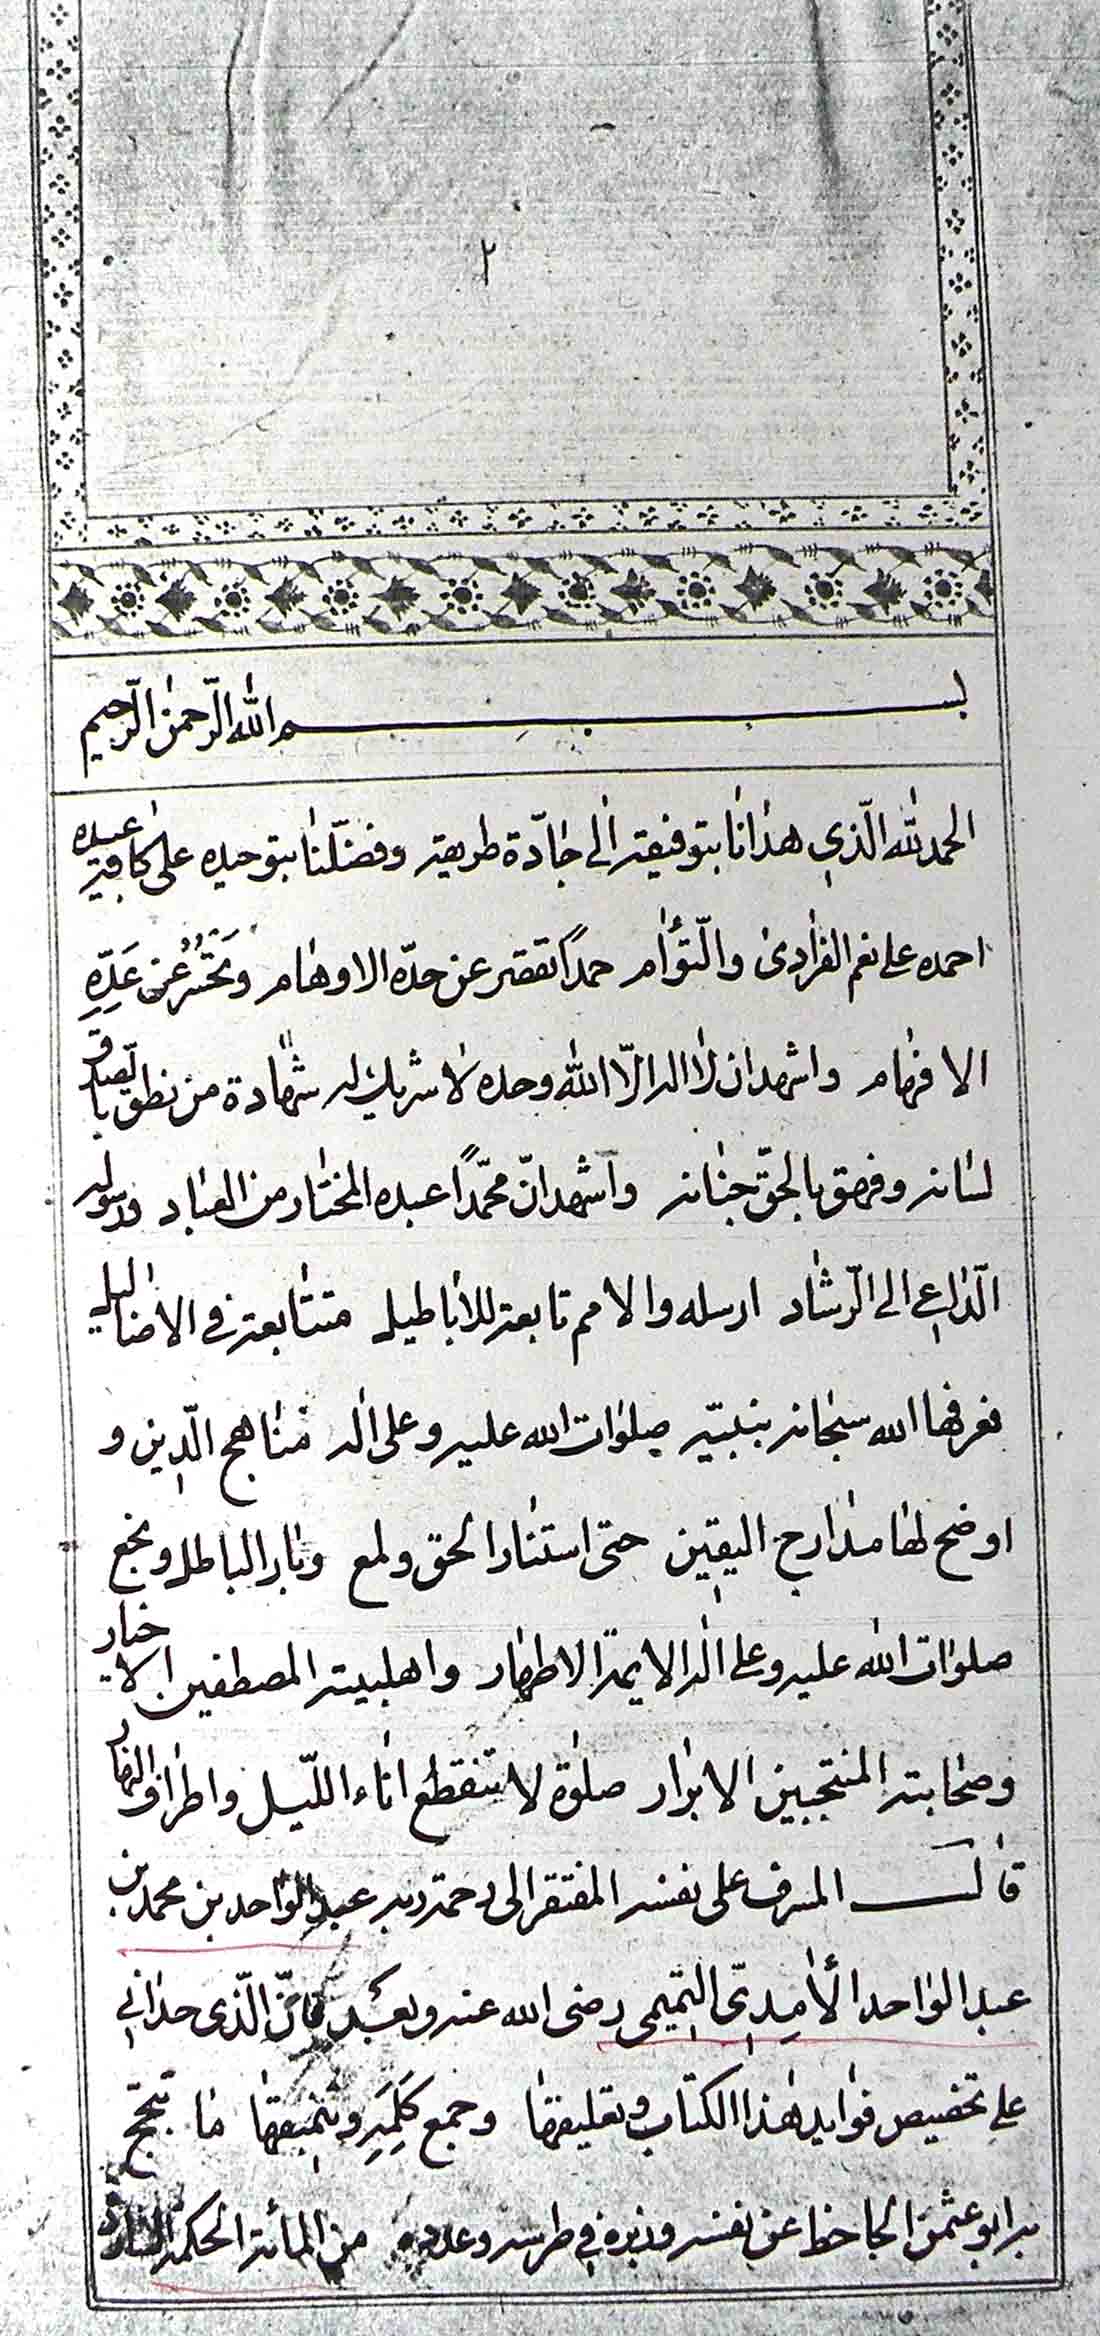 ٢
بسم الله الرّحمن الرّحيم
الحمد لله الّذي هدانا بتوفيقه الى جادّة طريقته وفضّلنا بتوحيده على كافة عبيده
احمده على نعم الفرادى والتّؤام حمداً تقصر عن حدّه الاوهام وتحسر عن عَدِّهِ
الافهام واشهد ان لا اله الّا الله وحده لا شريك له شهادة من نطق بالصدق
لسانه وفهق بالحقّ جنانه واشهد انّ محمّداً عبده المختار من العباد ورسوله
الدّاعي الى الرّشاد ارسله والامم تابعة للاباطيل متتابعة في الاضاليل
فعرفها الله سبحانه بنبيّه صلوات الله عليه وعلى اله مناهج الدّين و
اوضح لها مدارج اليقين حتى استنار الحق ولمع وبار الباطل ونخع
صلوات الله عليه وعلى اله الايمة الاطهار واهلبيته المصطفين الاخيار
وصحابته المنتجبين الابرار صلوة لا تنقطع اناء اللّيل واطراف النهار
قال المسرف على نفسه المفتقر الى رحمة ربه عبد الواحد بن محمد بن
عبد الواحد الأمِدِيّ التميمى رضى الله عنه وبعد فانّ الّذى حداني
على تخصيص فوايد هذا الكتاب وتعليقها وجمع كَلِمِهِ وتنميقها ما تبجّح
به ابو عثمن الجاحظ عن نفسه وزبره في طرسه وعدده من المائة الحكمة